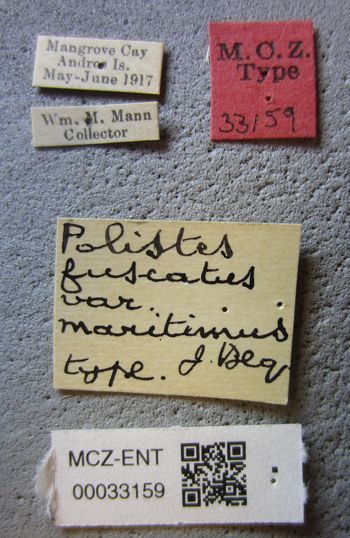 Mangrove Cay
Andros Is.
May-June 1917
Wm. M. Mann
Collector
M.C.Z.
Type
33159
Polistes
fuscatus
var.
maritimus
type. J. Beq.
MCZ-ENT
00033159